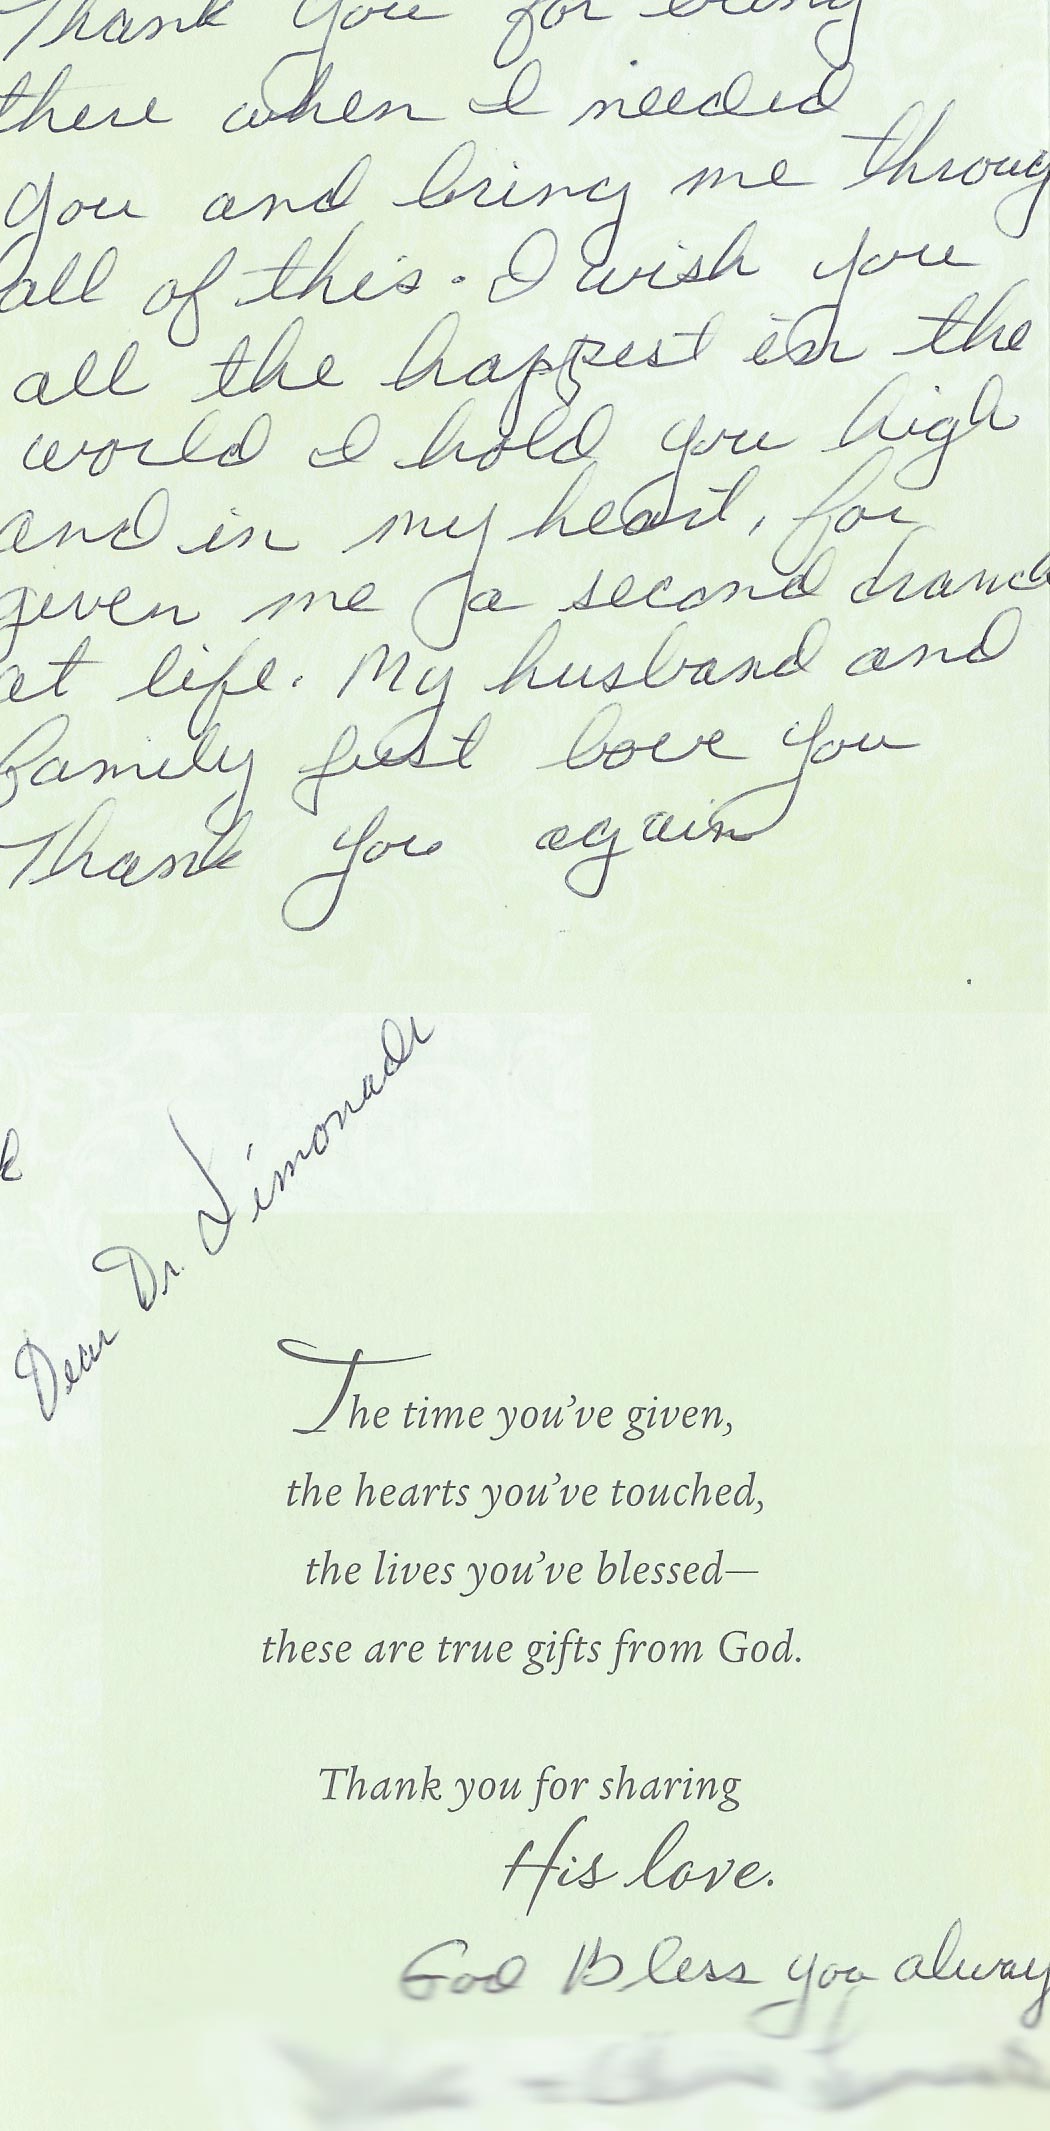 Thank you for being
there when I needed
you and bring me throug
all of this. I wish you
all the happest in the
world I hold you high
and in my heart, for
given me a second chance
at life. My husband and
family just love you
Thank you again
Dear Dr. Limonadi
The time you've given,
the hearts you've touched,
the lives you've blessed—
these are true gifts from God.
Thank you for sharing
His love.
God Bless you alway